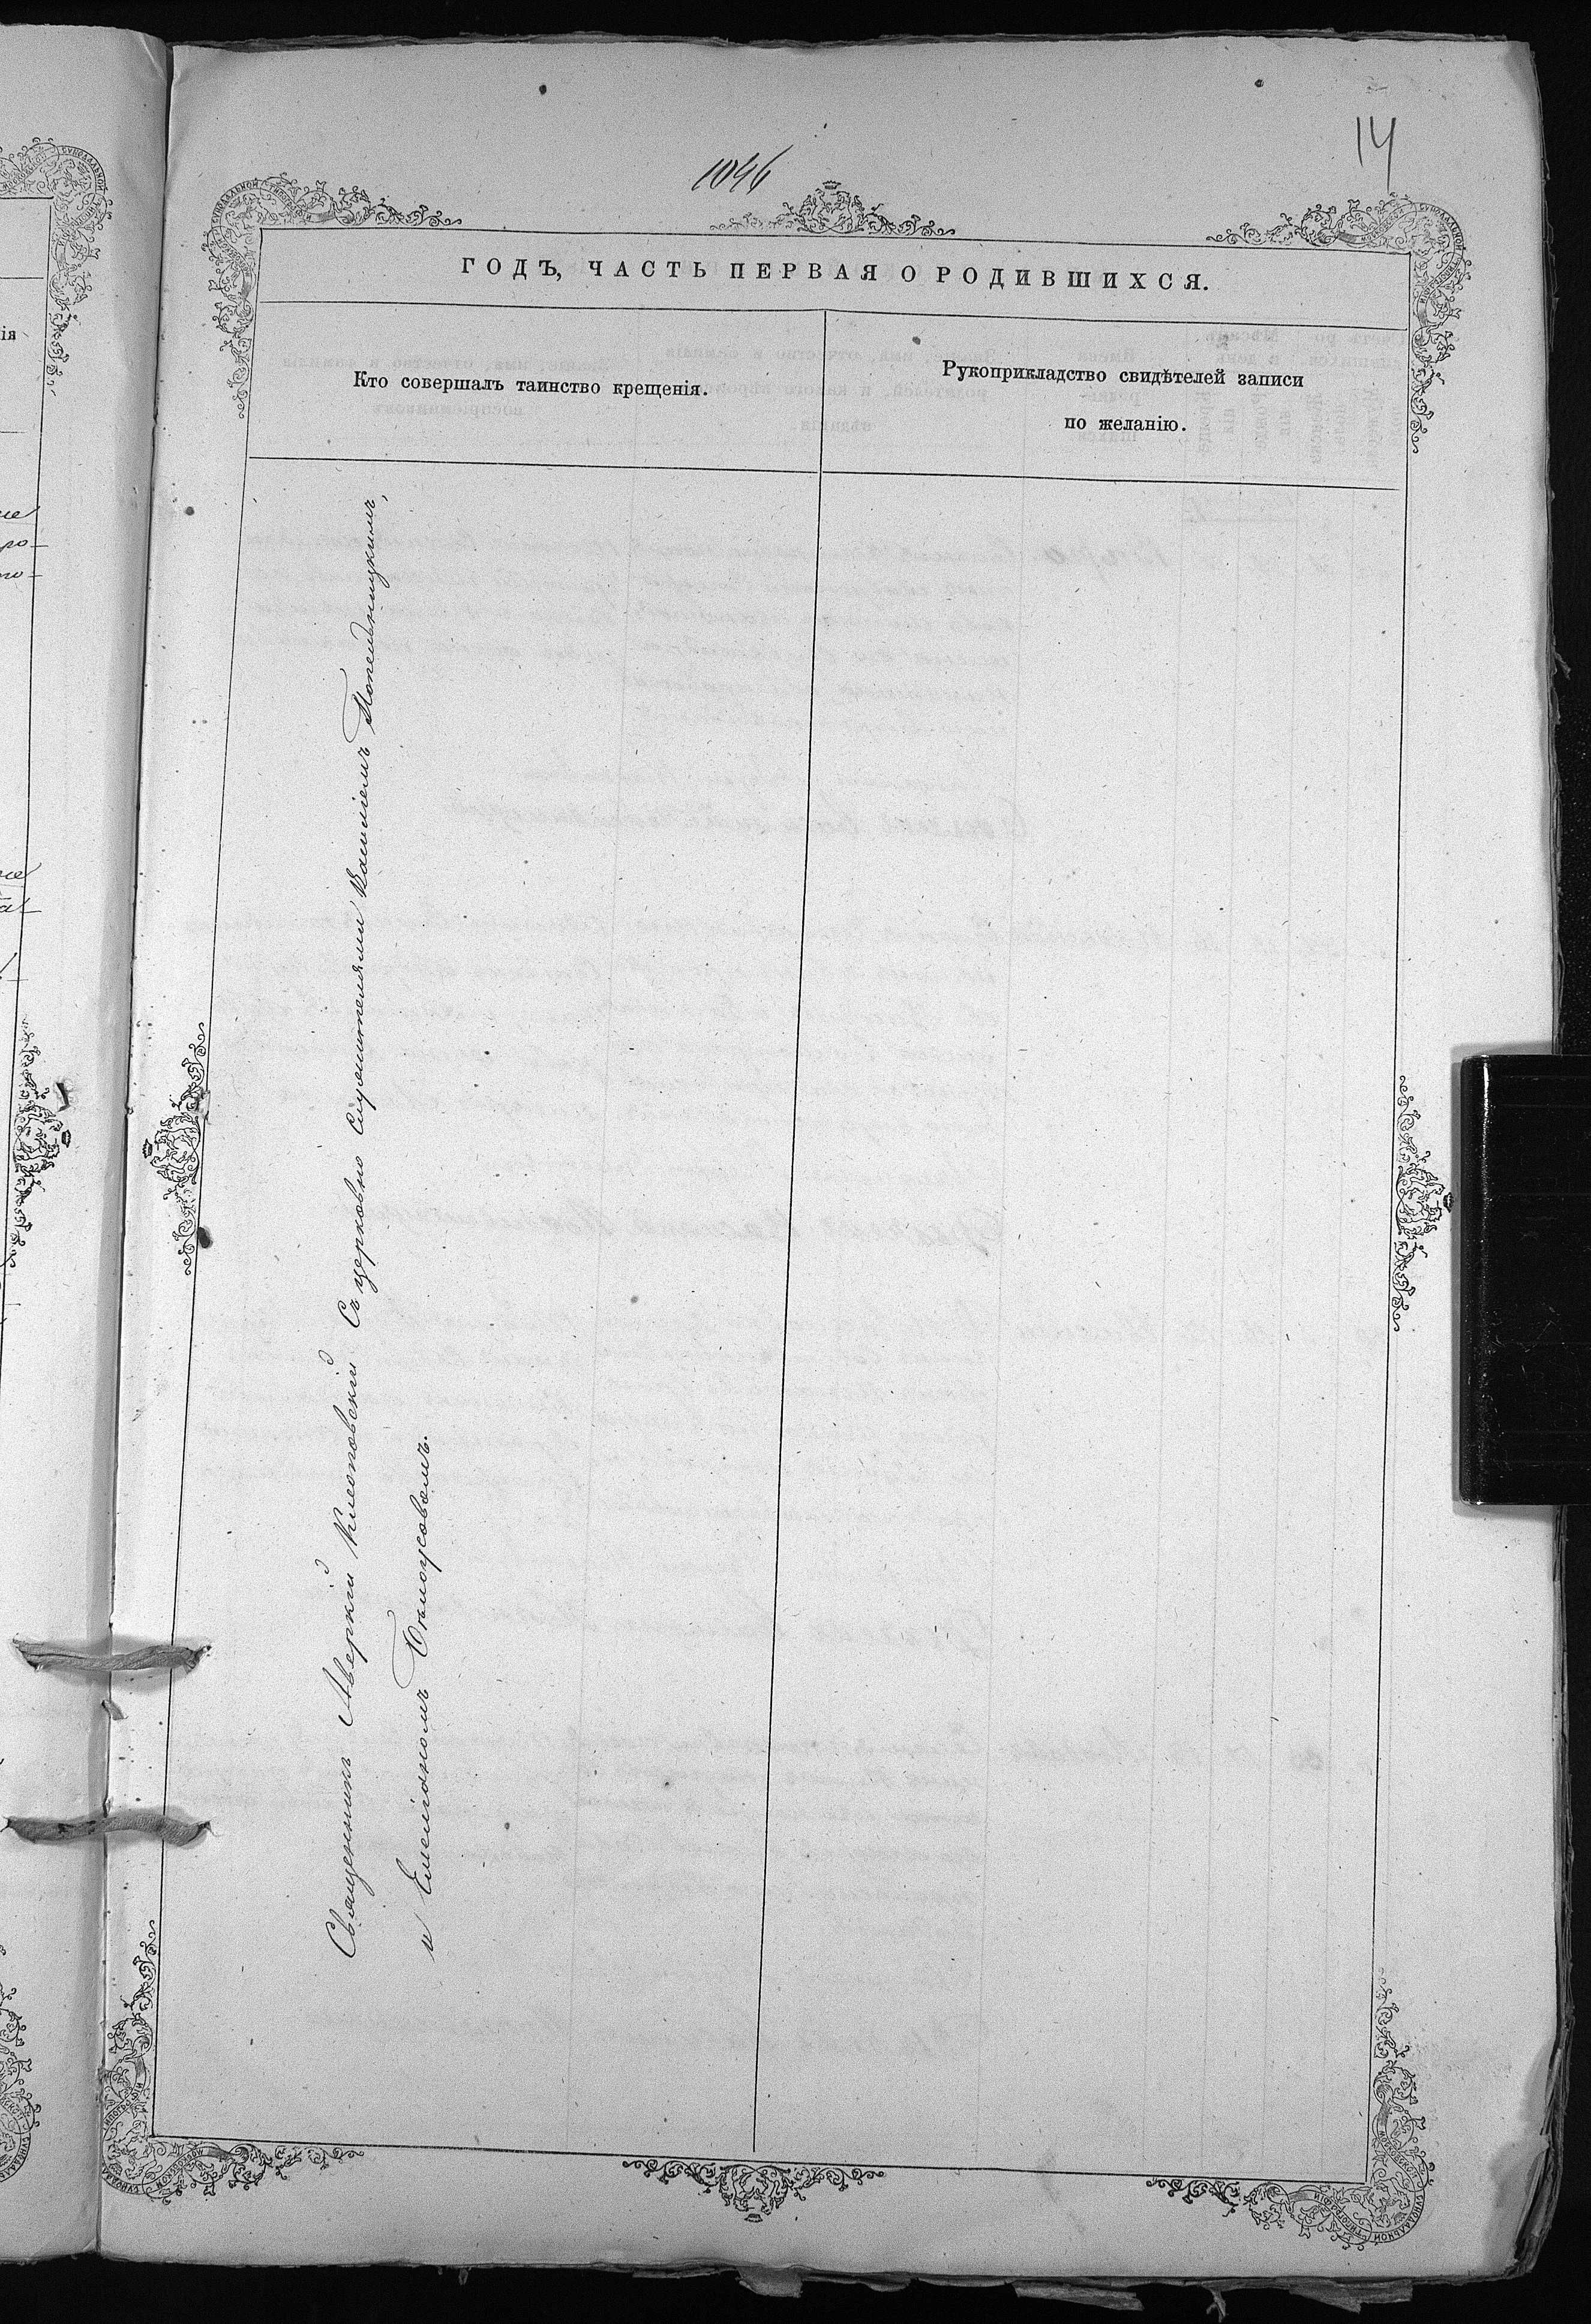 14
1046
ГОДЪ, ЧАСТЬ ПЕРВАЯ О РОДИВШИХСЯ.
Кто совершалъ таинство крещенія.
Рукоприкладство свидѣтелей записи
по желанію.
Священникъ Аверкій Клеоповскій Съ церковно служителями Василіемъ Попельницкимъ,
и Емеліаномъ Бѣлоусовомъ.